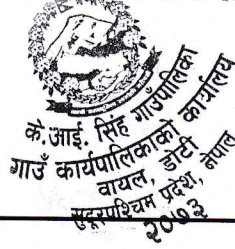 के.आई. सिंह गाउँपालिका
गाउँ कार्यपालिकाको कार्यालय
वायल, डोटी
सुदूरपश्चिम प्रदेश, नेपाल
२०७३